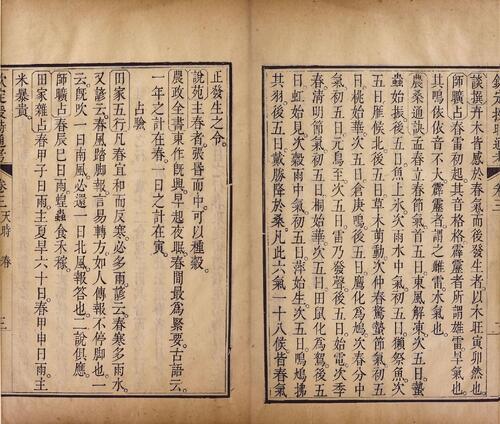 談撰卉木皆感於春氣而後發生者以木旺寅卯然也。
師曠占春雷初起其音格格霹靂者所謂雄雷旱氣也。
其鳴依依音不大霹靂者謂之雌雷水氣也。
農桑通訣孟春立春節氣首五日東風解凍次五日蟄
蟲始振後五日魚上冰次雨水中氣初五日獺祭魚次
五日雁候北後五日草木萌動次仲春驚蟄節氣初五
日桃始華次五日倉庚鳴後五日鷹化為鳩次春分中
氣初五日元鳥至次五日雷乃發聲後五日始電次季
春清明節氣初五日桐始華次五日田鼠化為鴽後五
日虹始見次穀雨中氣初五日萍始生次五日鳴鳩拂
其羽後五日戴勝降於桑凡此六氣一十八候皆春氣
正發生之令。
說苑主春者張昏而中可以種穀。
農政全書東作既興早起夜眠春間最為緊要古語云
一年之計在春一日之計在寅。
占驗
田家五行凡春宜和而反寒必多雨諺云春寒多雨水
又諺云春風踏腳報言易轉方如人傳報不停腳也一
云既吹一日南風必還一日北風報答也二說俱應。
師曠占春辰巳日雨蝗蟲食禾稼。
田家雜占春甲子日雨主夏旱六十日春甲申日雨主
米暴貴。
卷三 天時 春
三